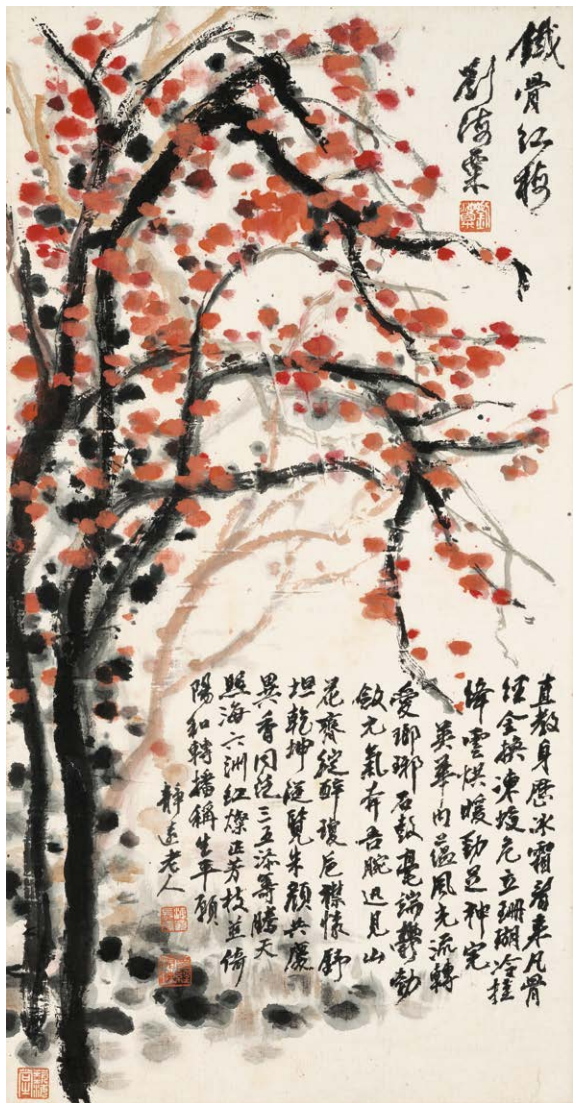 鐵骨红梅
劉海粟
直教身歷冰霜看來凡骨
經全換凍蛟危立珊瑚冷挂
絳雲烘暖勁足神完
英華內蘊風光流轉
愛瑯琊石鼓毫端鬱勃
斂元氣奔吾腕迅見山
花齊綻醉瓊卮襟懷舒
坦乾坤縱覽朱顏共慶
異香同繞三五添籌騰天
照海六洲红燦正芳枝並倚
陽和轉播稱生平願
靜遠老人